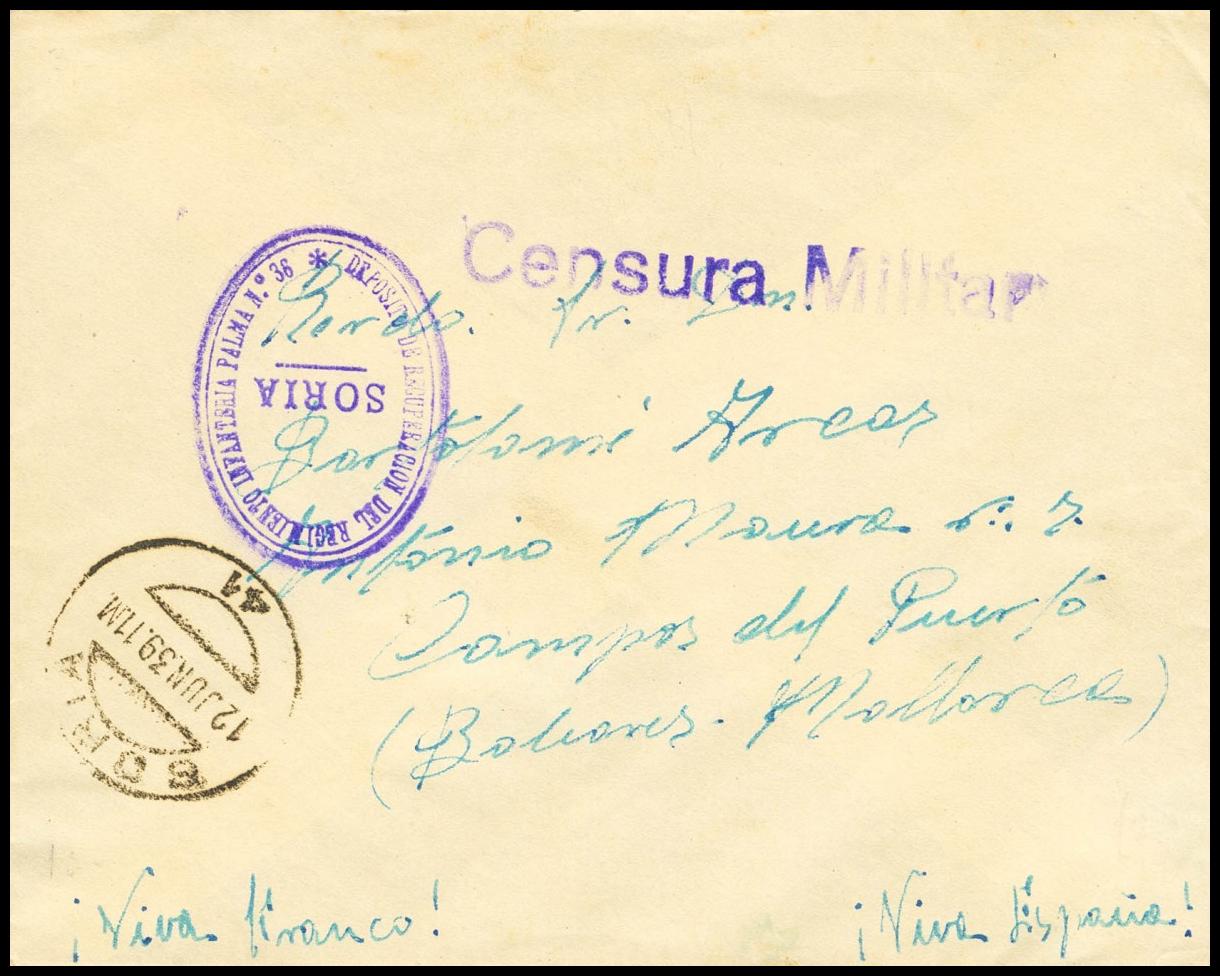 Censura Militar
* DEPOSITO DE RECUPERACION DEL REGIMIENTO INFANTERIA PALMA N.º 36
SORIA
Rerdo. Sr. Don.
Bartolomé Arcas
Antonio Maura n.: 7.
Campos del Puerto
(Baleares. Mallorca)
SORIA
12.JUN.39.11M
41
¡Viva Franco!
¡Viva España!